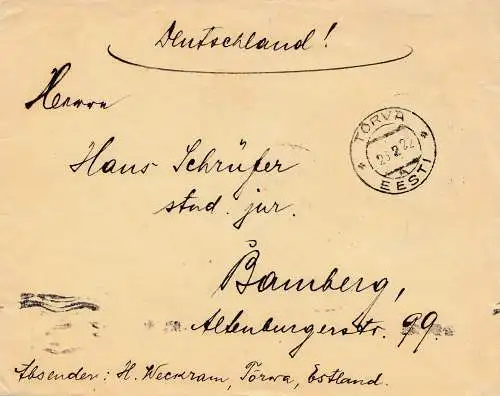 Deutschland!
Herrn
TÕRVA
23 2 22
A
EESTI
Hans Schrüfer
stud. jur.
Bamberg,
Altenburgerstr. 99.
Absender: H. Weckram, Törwa, Estland.